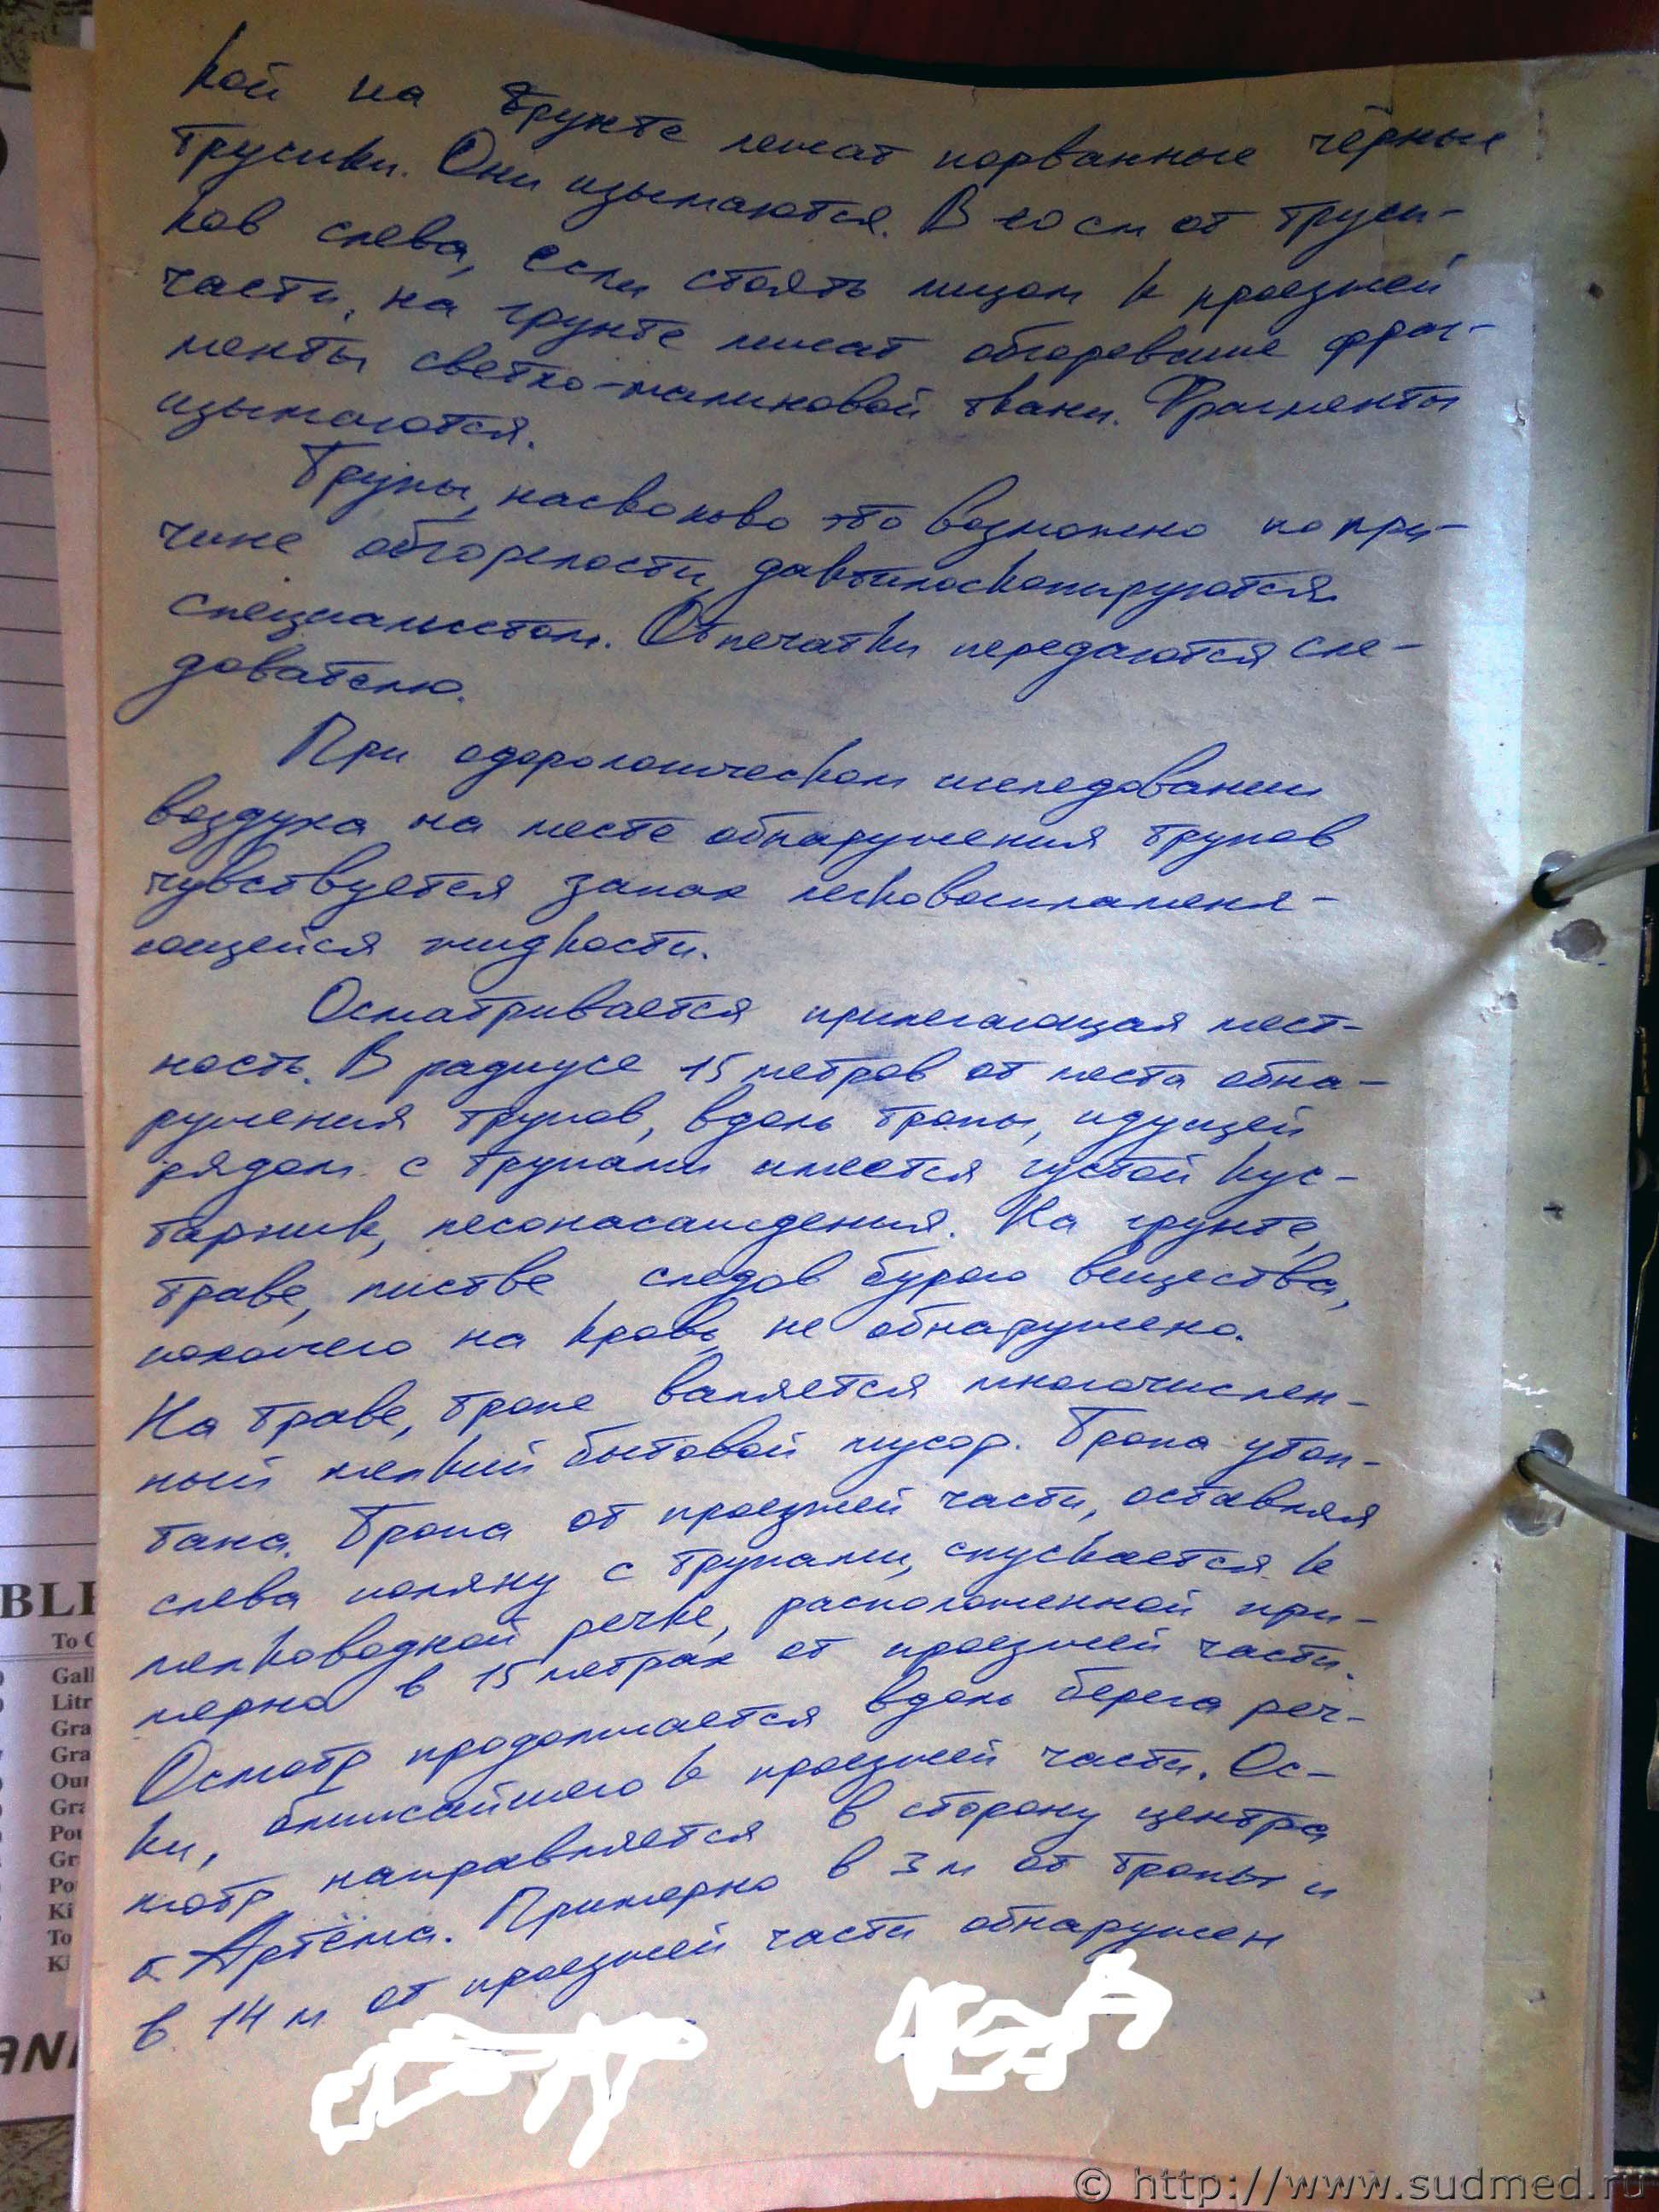 кой на грунте лежат порванные чёрные
трусики. Они изымаются. В 10 см от труси-
ков слева, если стоять лицом к проезжей
части, на грунте лежат обгоревшие фраг-
менты светло-малиновой ткани. Фрагменты
изымаются.
Трупы, насколько это возможно по при-
чине обгорелости, дактилоскопируются
специалистом. Отпечатки передаются сле-
дователю.
При одорологическом исследовании
воздуха на месте обнаружения трупов
чувствуется запах легковоспламеня-
ющейся жидкости.
Осматривается прилегающая мест-
ность. В радиусе 15 метров от места обна-
ружения трупов, вдоль тропы, идущей
рядом с трупами имеется густой кус-
тарник, лесонасаждения. На грунте,
траве, листве следов бурого вещества,
похожего на кровь, не обнаружено.
На траве, тропе валяется многочислен-
ный мелкий бытовой мусор. Тропа утоп-
тана. Тропа от проезжей части, оставляя
слева поляну с трупами, спускается к
мелководной речке, расположенной при-
мерно в 15 метрах от проезжей части.
Осмотр продолжается вдоль берега реч-
ки, ближайшего к проезжей части. Ос-
мотр направляется в сторону центра
г. Артёма. Примерно в 3 м от тропы и
в 14 м от проезжей части обнаружен
BLE
To
Gall
Litr
Gra
Gra
Our
Gra
Pou
Gr
Po
Ki
To
K
© http://www.sudmed.ru